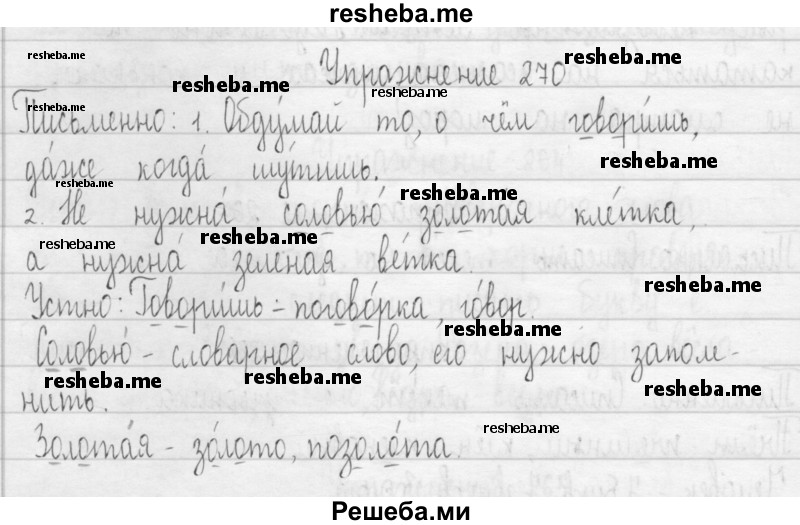 resheba.me
Упражнение 270
resheba.me
resheba.me
resheba.me
resheba.me
Письменно: 1. Обду́май то, о чём говори́шь,
resheba.me
да́же когда́ шу́тишь.
resheba.me
resheba.me
2. Не нужна́ соловью́ золота́я кле́тка,
resheba.me
resheba.me
а нужна́ зелёная ве́тка.
resheba.me
Устно: Говори́шь – погово́рка, го́вор.
resheba.me
Соловью́ – словарное слово, его нужно запом-
resheba.me
resheba.me
resheba.me
нить.
resheba.me
Золота́я – зо́лото, позоло́та.
Решеба.ми